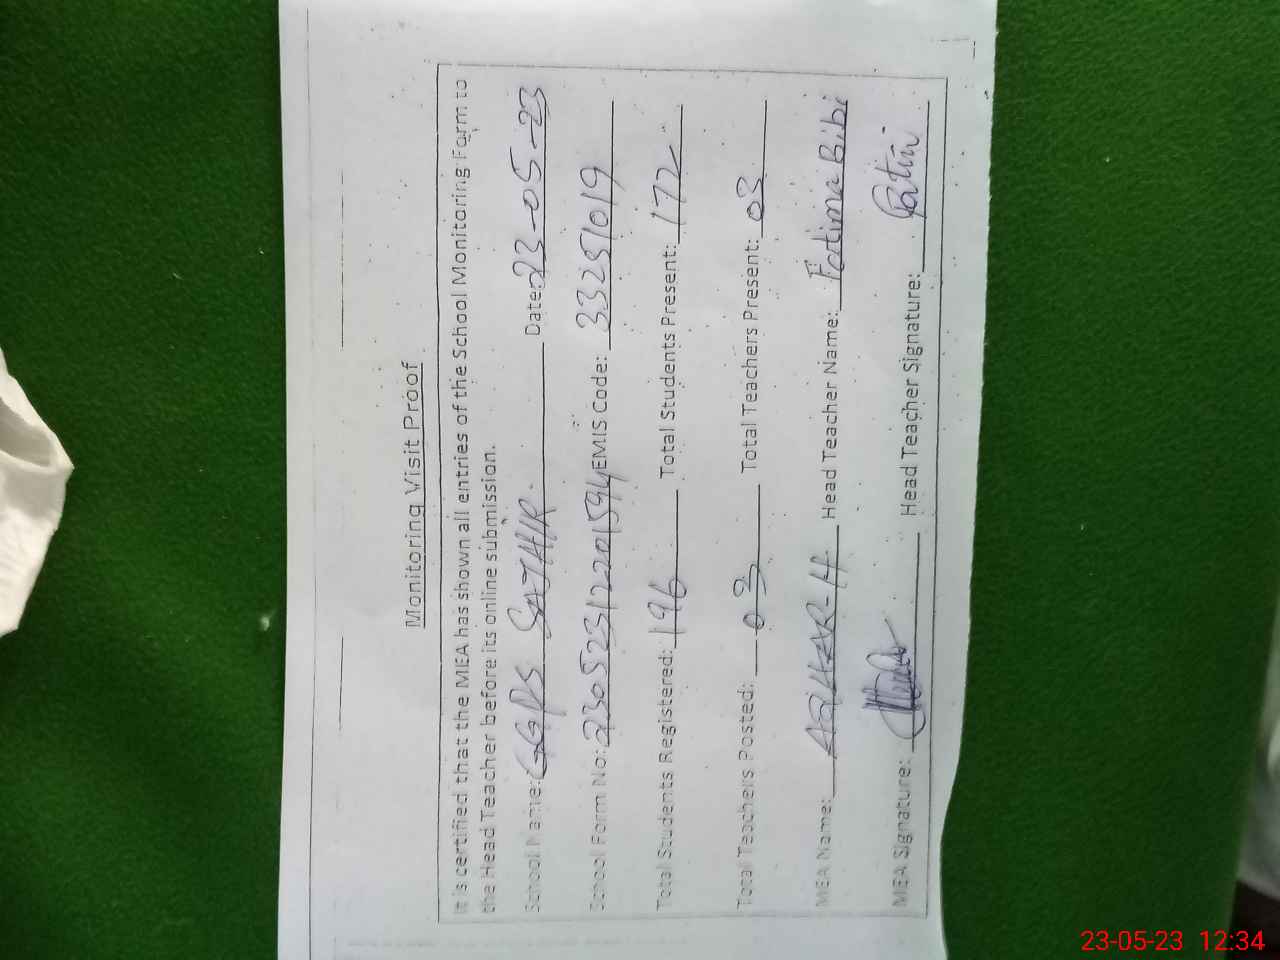 Monitoring Visit Proof
It is certified that the MEA has shown all entries of the School Monitoring Form to
the Head Teacher before its online submission.
School Name: GGPS SAJHIR. Date: 23-05-23
School Form No: 23052312201594 EMIS Code: 33251019
Total Students Registered: 196 Total Students Present: 172
Total Teachers Posted: 03 Total Teachers Present: 03
MEA Name: Head Teacher Name: Fatima Bibi
MEA Signature: Head Teacher Signature:
23-05-23 12:34